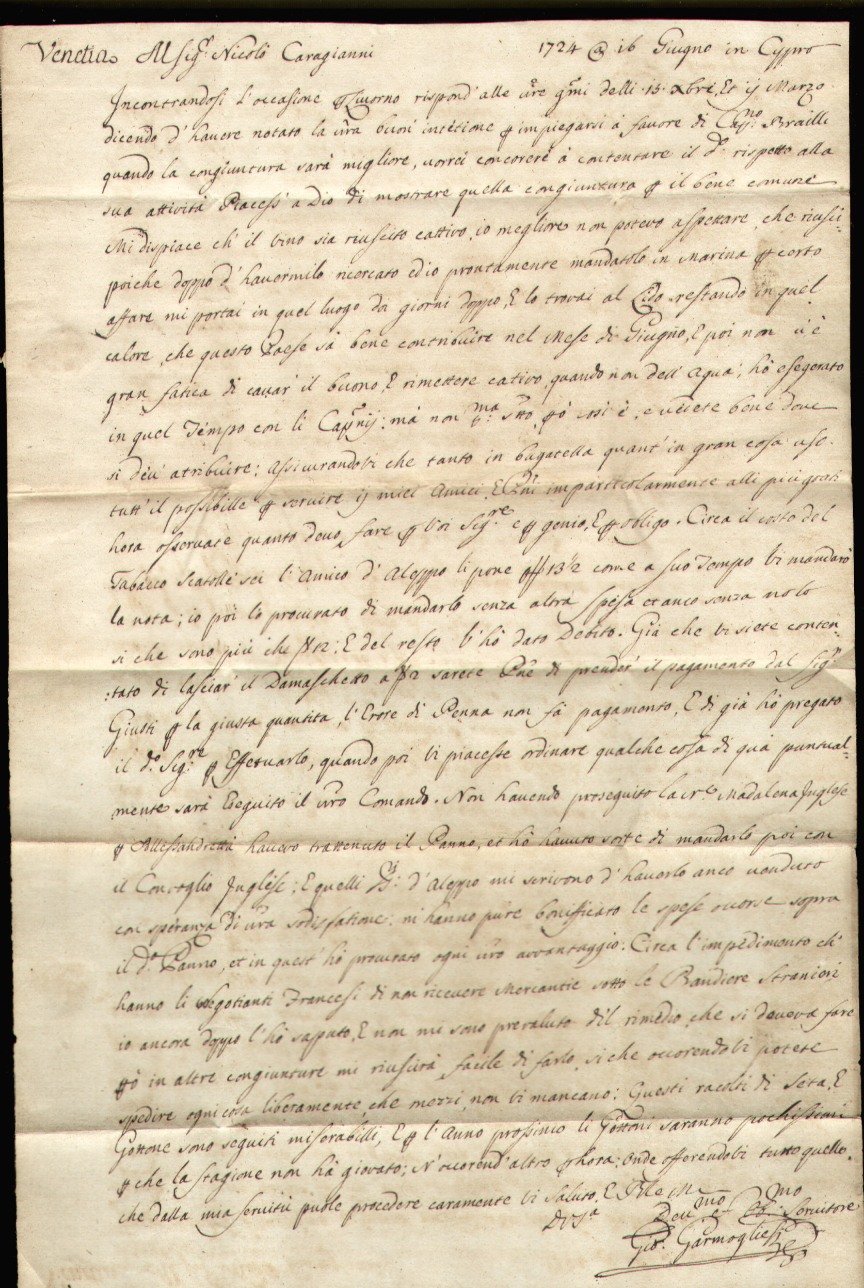 Venetia Al Sig.r Nicolò Caragianni 1724 @ 16 Giugno in Cypro
Incontrandosi l'occasione p Livorno rispond' alle vre gme delli 15 xbre, Et ij Marzo
dicendo d'havere notato la vra buon' intetione p impiegarsi à favore di Cap.no Brailli
quando la congiuntura sarà migliore, vorrei concorere à contentare il d.o rispetto alla
sua attività Piacess' a Dio di mostrare quella congiuntura p il bene comune
Mi dispiace ch' il vino sia riuscito cattivo, io megliore non potevo aspettare, che riusci-
poiche doppo d'havermilo ricercato ed io prontamente mandatolo in Marina p certo
affare mi portai in quel luogo doi giorni doppo, E lo trovai al restando in quel
calore, che questo Paese sà bene contribuire nel Mese di Giugno, E poi non v'è
gran fatica di cavar' il buono, E rimettere cativo, quando non dell' Aqua, hò esegerato
in quel Tempo con li mà non così è, e vedete bene dove
si dev' atribuire: Assicurandovi che tanto in bagatella quant' in gran cosa uso
tutt' il possibille p servire ij miei Amici, E imparticolarmente alli più grati
hora osservate quanto devo fare p Voi Sig.re e p genio, E p obligo. Circa il costo del
Tabacco Scatolle sei l'Amico d'Aleppo li pone 13½ come a suo Tempo vi mandarò
la nota; io poi lò procurato di mandarlo senza altra spesa et anco senza nolo
si che sono più che 12; E del resto l'hò dato Debito. Già che vi siete conten-
:tato di lasciar' il Damaschetto a 2 sarete Pne di prender' il pagamento dal Sig.r
Giusti p la giusta quantita, l'Erore di Penna non fà pagamento, E di già hò pregato
il d.o Sig.re p Effetuarlo, quando poi vi piacesse ordinare qualche cosa di quà puntual-
mente sarà Eseguito il vro Comando. Non havendo proseguito la Madalena Inglese
p Allessandretta havevo trattenuto il Panno, et hò havuto sorte di mandarlo poi con
il Convoglio Inglese; E quelli d'Aleppo mi scrivono d'haverlo anco venduto
con speranza di vra sodisfatione: ni hanno pure bonifficato le spese ocorse sopra
il d.o Panno, et in quest' hò procurato ogni vro avvantaggio. Circa l'impedimento ch'
hanno li Negotianti Francesi di non ricevere Mercantie sotto le Bandiere Straniere
io ancora doppo l'hò saputo, E non mi sono prevaluto dil rimedio, che si doveva fare
pò in altre congiunture mi riuscirà facile di farlo, si che occorendovi potete
spedire ogni cosa liberamente, che mezzi non vi mancano; Questi racolti di Seta, E
Gottone sono seguiti miserabilli, E p l'Anno prossimo li Gottoni saranno pochissimi
p che la stagione non hà giovato; N'occorend' altro p hora; Onde offerendovi tutto quello,
che dalla mia servitù puole procedere caramente vi saluto, E
Di V.S.a
Dev.mo Servitore
Gio. Garmogliesi